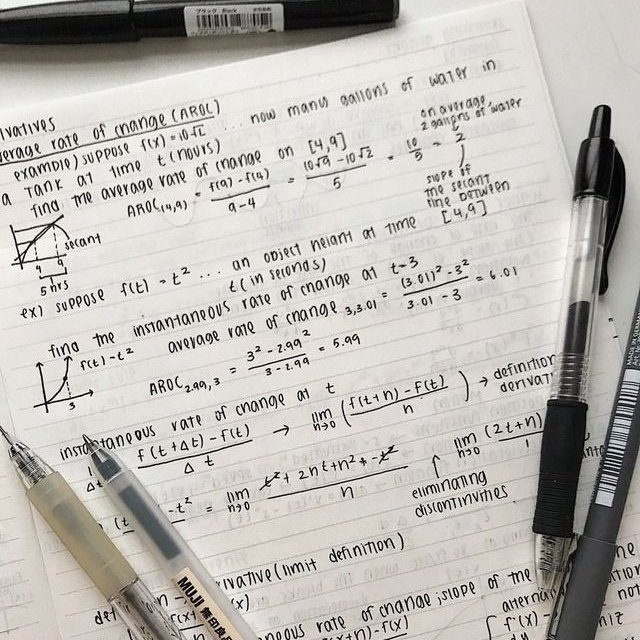 ブラック Black
ivatives
verage rate of change (AROC)
example) suppose f(x) = 10√x ... how many gallons of water in
a tank at time t (hours)
find the average rate of change on [4,9]
AROC(4,9) = f(9) - f(4) / 9-4 = 10√9 - 10√2 / 5 = 10/5 = 2
on average,
2 gallons of water
slope of
the secant
line between
[4,9]
secant
4 9
5 hrs
ex) suppose f(t) = t² ... an object height at time
t (in seconds)
find the instantaneous rate of change at t=3
average rate of change 3,3.01 = (3.01)² - 3² / 3.01 - 3 = 6.01
f(t) - t²
3
AROC 2.99,3 = 3² - 2.99² / 3 - 2.99 = 5.99
instantaneous rate of change at t
f(t+Δt) - f(t) / Δt → lim n→0 (f(t+n) - f(t) / n) → definition
derivat
- t² = lim n→0 t² + 2nt + n² - t² / n
lim n→0 (2t+n) / 1
eliminating
discontinuities
rivative (limit definition)
MUJI 無印良品
neous rate of change; slope of the
(x+n) - f(x)
f'(x)
not